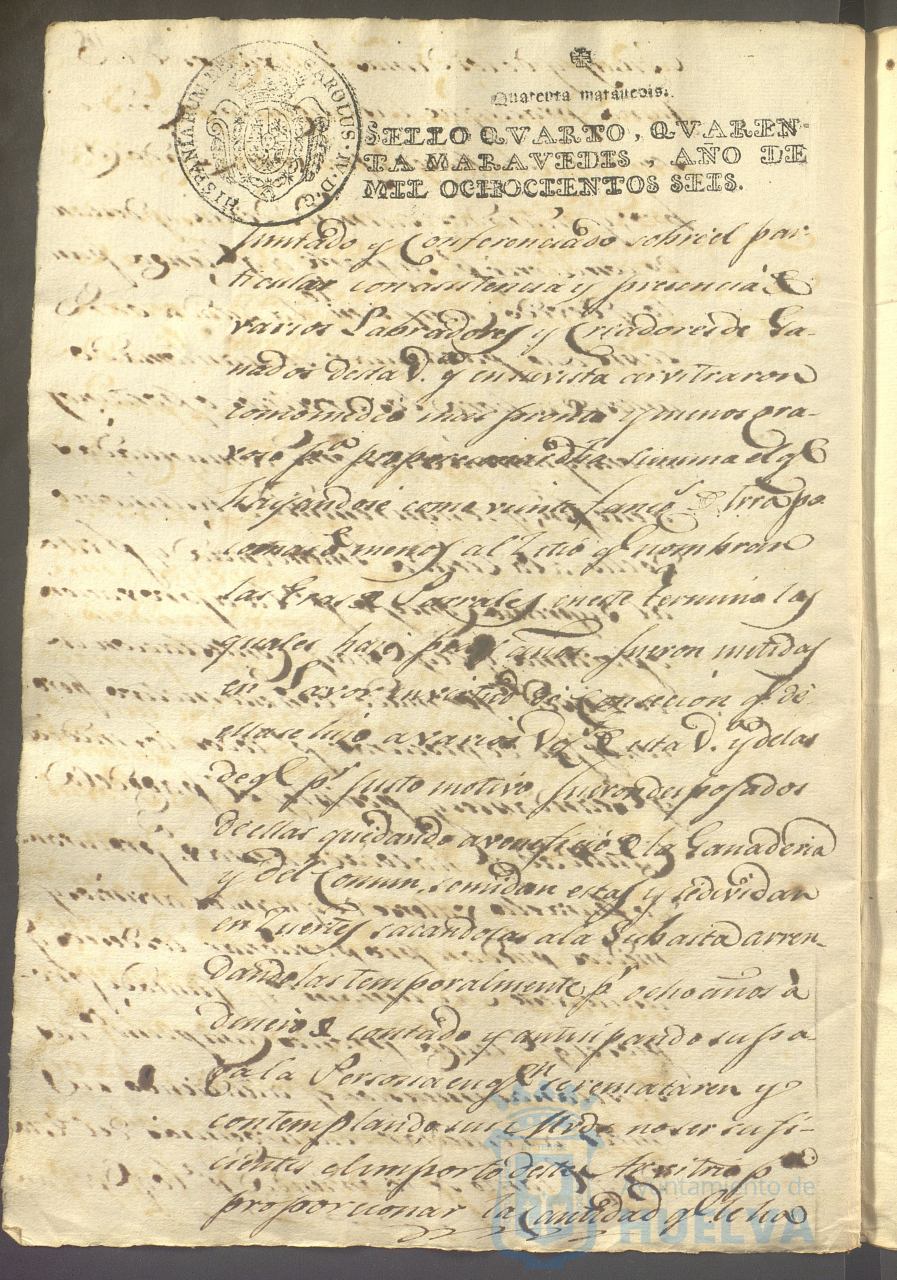 HISPANIARUM REX CAROLUS·IV·D·G·
Quarenta maravedis.
SELLO QVARTO, QVAREN-
TA MARAVEDIS, AÑO DE
MIL OCHOCIENTOS SEIS.
juntado y Conferenciado sobre el par-
ticular con asistencia y presencia de
varios Labradores y Criadores de Ga-
nados desta V. y en su vista arvitraron
como medio mas pronto y menos gra-
voso pa. proporcionar dha summa el qe
fixandose como veinte fans. de trra po
co mas o menos al sitio qe nombran
las tras de en este termino las
quales hace ps. años fueron metidas
en Lavor en virtud de Concecion qe de
ellas se hizo a varios Vs. de esta V. y delas
de qe pr. justo motivo fueron desposados
de ellas quedando a veneficio de la Ganaderia
y del Comun, se midan estas y se dividan
en Suertes sacandolas ala Subasta arren-
dandolas temporalmente pr. ocho años à
dinero de contado y antisipando su pa-
ga la Persona en qn. se remataren y
contemplando sus Mrds. no ser sufi-
cientes el importe de este Arvitrio pa.
proporcionar la Cantidad qe. se ha
Ayuntamiento de
HUELVA